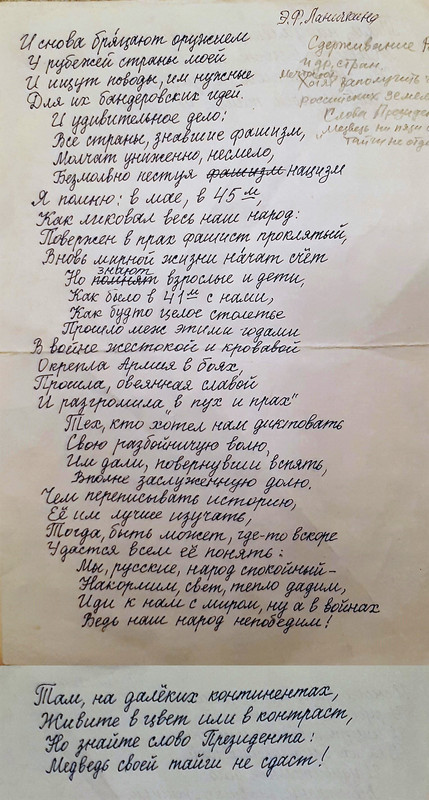 Э.Ф. Паничкина
И снова бряцают оружием
У рубежей страны моей
И ищут поводы, им нужные
Для их бандеровских идей.
И удивительное дело:
Все страны, знавшие фашизм,
Молчат униженно, несмело,
Безмолвно пестуя фашизм нацизм
Я помню: в мае, в 45м,
Как ликовал весь наш народ:
Повержен в прах фашист проклятый,
Вновь мирной жизни начат счёт
знают
Но помнят взрослые и дети,
Как было в 41м с нами,
Как будто целое столетье
Прошло меж этими годами
В войне жестокой и кровавой
Окрепла Армия в боях,
Прошла, овеянная славой
И разгромила "в пух и прах"
Тех, кто хотел нам диктовать
Свою разбойничую волю,
Им дали, повернувши вспять,
Вполне заслуженную долю.
Чем переписывать историю,
Её им лучше изучать,
Тогда, быть может, где-то вскоре
Удастся всем её понять:
Мы, русские, народ спокойный-
Накормим, свет, тепло дадим,
Иди к нам с миром, ну а в войнах
Ведь наш народ непобедим!
Сдерживание
и др. стран.
Хотят заполучить
российских земель
Слова Президента
"Медведь
тайги не отдаст
Там, на далёких континентах,
Живите в цвет или в контраст,
Но знайте слово Президента:
Медведь своей тайги не сдаст!